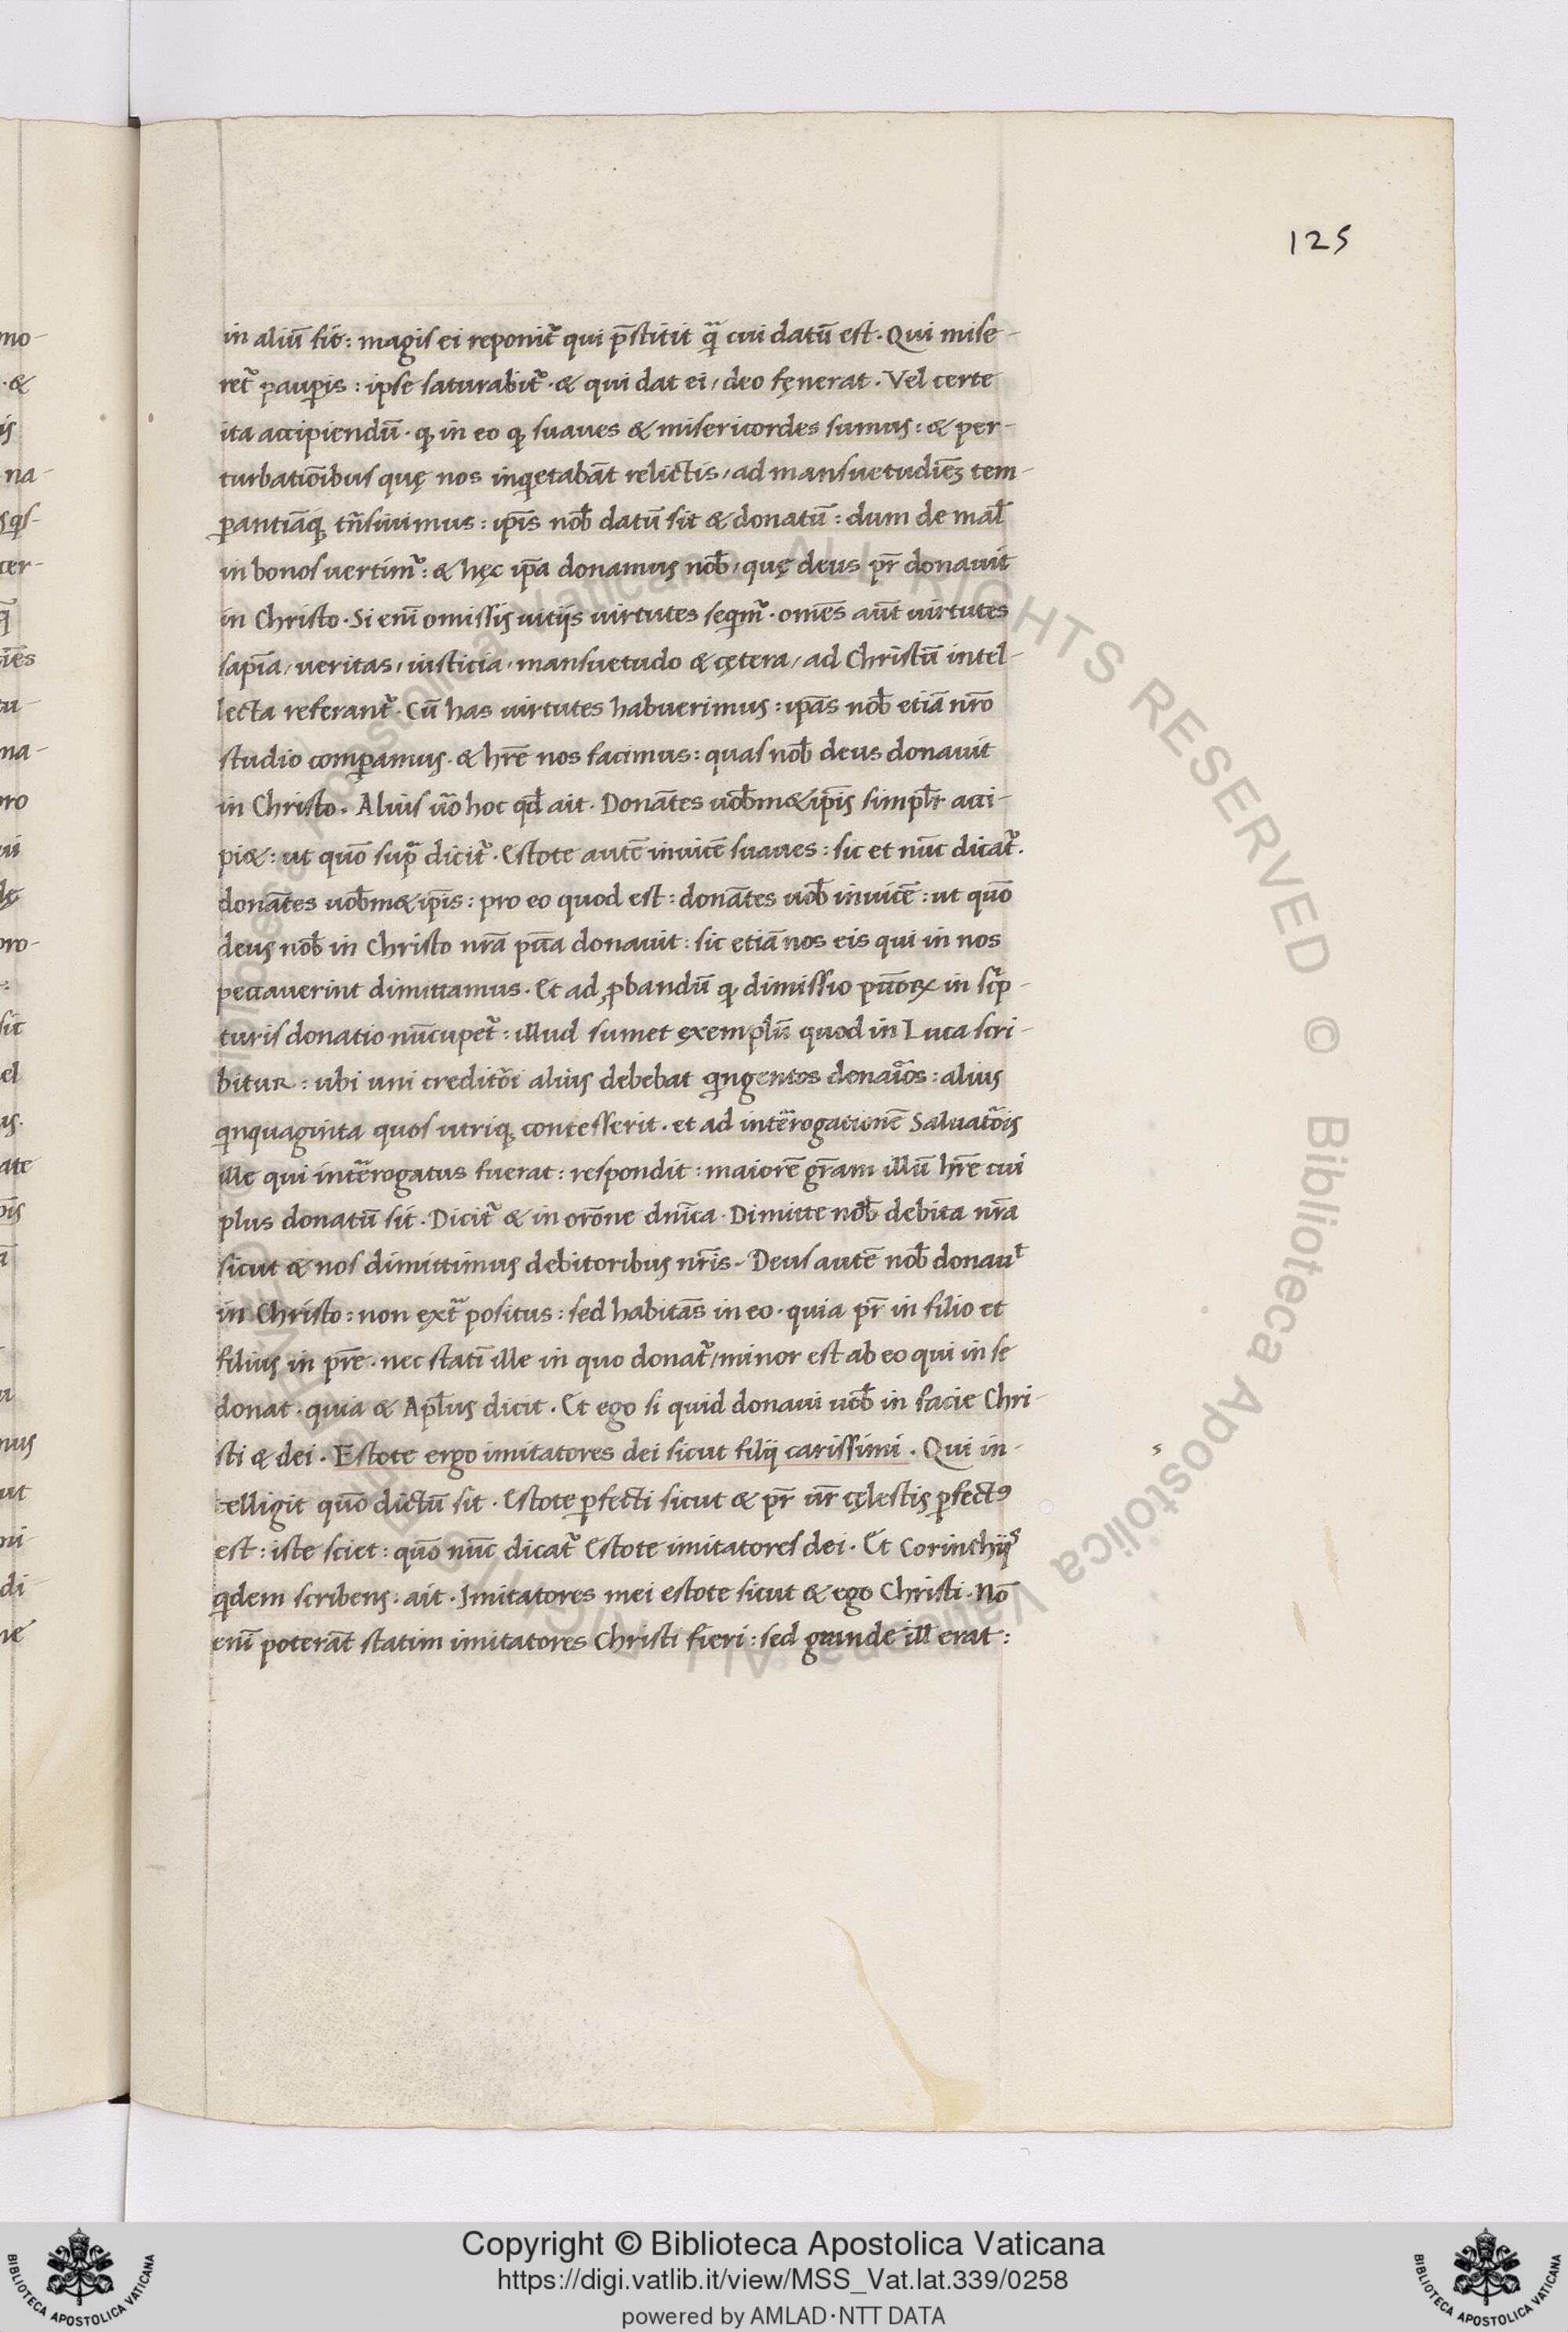 125
in aliū fit: magis ei reponit᷑ qui p̄stitit qᷓ cui datū est. Qui mise-
ret᷑ paup̲is: ipse saturabit᷑. & qui dat ei, deo fęnerat. Vel certe
ita accipiendū. ꝙ in eo ꝙ suaues & misericordes sumus: & per-
turbatiōibus quę nos inqͥetabāt relictis, ad mansuetudiēꝫ tem-
ꝑantiāqꝫ tn̄siuimus: ip̄is nob̄ datū sit & donatū: dum de mal̄
in bonos vertim᷑: & hęc ip̄a donamus nob̄, quę deus pr̄ donauit
in Christo. Si eni᷑ omissis uitijs uirtutes seqͥm᷑. om̄es aūt uirtutes
sapīa, ueritas, iusticia, mansuetudo & cętera, ad Christū intel-
lecta referant᷑. Cū has uirtutes habuerimus: ip̄as nob̄ etiā nr̄o
studio comꝑamus. & hr̄e nos facimus: quas nob̄ deus donauit
in Christo. Alius ūo hoc qd̄ ait. Donātes uob̄m&ip̄is simpl̄r acci-
pi&: ut quō supᷓ dicit᷑. Estote autē inuicē suaues: sic et nūc dicat᷑.
donātes uob̄m&ip̄is: pro eo quod est: donātes uob̄ inuicē: ut quō
deus nob̄ in Christo nr̄a pc̄ta donauit: sic etiā nos eis qui in nos
peccauerint dimittamus. Et ad ꝓbandū ꝙ dimissio pc̄torꝝ in sc̄p-
turis donatio nūcupet᷑: illud sumet ęxemplū quod in Luca scri-
bitur: ubi uni creditōi alius debebat qͥngentos denaīos: alius
qͥnquaginta quos utriqꝫ concesserit. et ad int᷑rogationē Saluatōis
ille qui int᷑rogatus fuerat: respondit: maiorē gr̄am illū hr̄e cui
plus donatū sit. Dicit᷑ & in orōne dn̄ica. Dimitte nob̄ debita nr̄a
sicut & nos dimittimus debitoribus nr̄is. Deus autē nob̄ donauᵗ
in Christo: non ęxtᷓ positus: sed habitās in eo. quia pr̄ in filio et
filius in pr̄e. nec stati᷑ ille in quo donat᷑, minor est ab eo qui in se
donat. quia & Apl̄us dicit. Et ego si quid donaui uob̄ in facie Chri-
sti & dei. Estote ergo imitatores dei sicut filij carissimi. Qui in-
telligit quō dictū sit. Estote ꝑfecti sicut & pr̄ ur̄ cęlestis ꝑfectꝰ
est: iste sciet: quō nūc dicat᷑ Estote imitatores dei. Et Corinthijˢ
qͥdem scribens. ait. Imitatores mei estote sicut & ego Christi. Nō
eni᷑ poterāt statim imitatores Christi fieri: sed grande ill̄ erat:
mo-
. &
na-
ter-
tu-
na-
pro
pro-
sit
el
ate
nus
ut
di-
Copyright © Biblioteca Apostolica Vaticana
https://digi.vatlib.it/view/MSS_Vat.lat.339/0258
powered by AMLAD·NTT DATA
BIBLIOTECA APOSTOLICA VATICANA
BIBLIOTECA APOSTOLICA VATICANA
© Biblioteca Apostolica Vaticana ALL RIGHTS RESERVED © Biblioteca Apostolica Vaticana ALL RIGHTS RESERVED